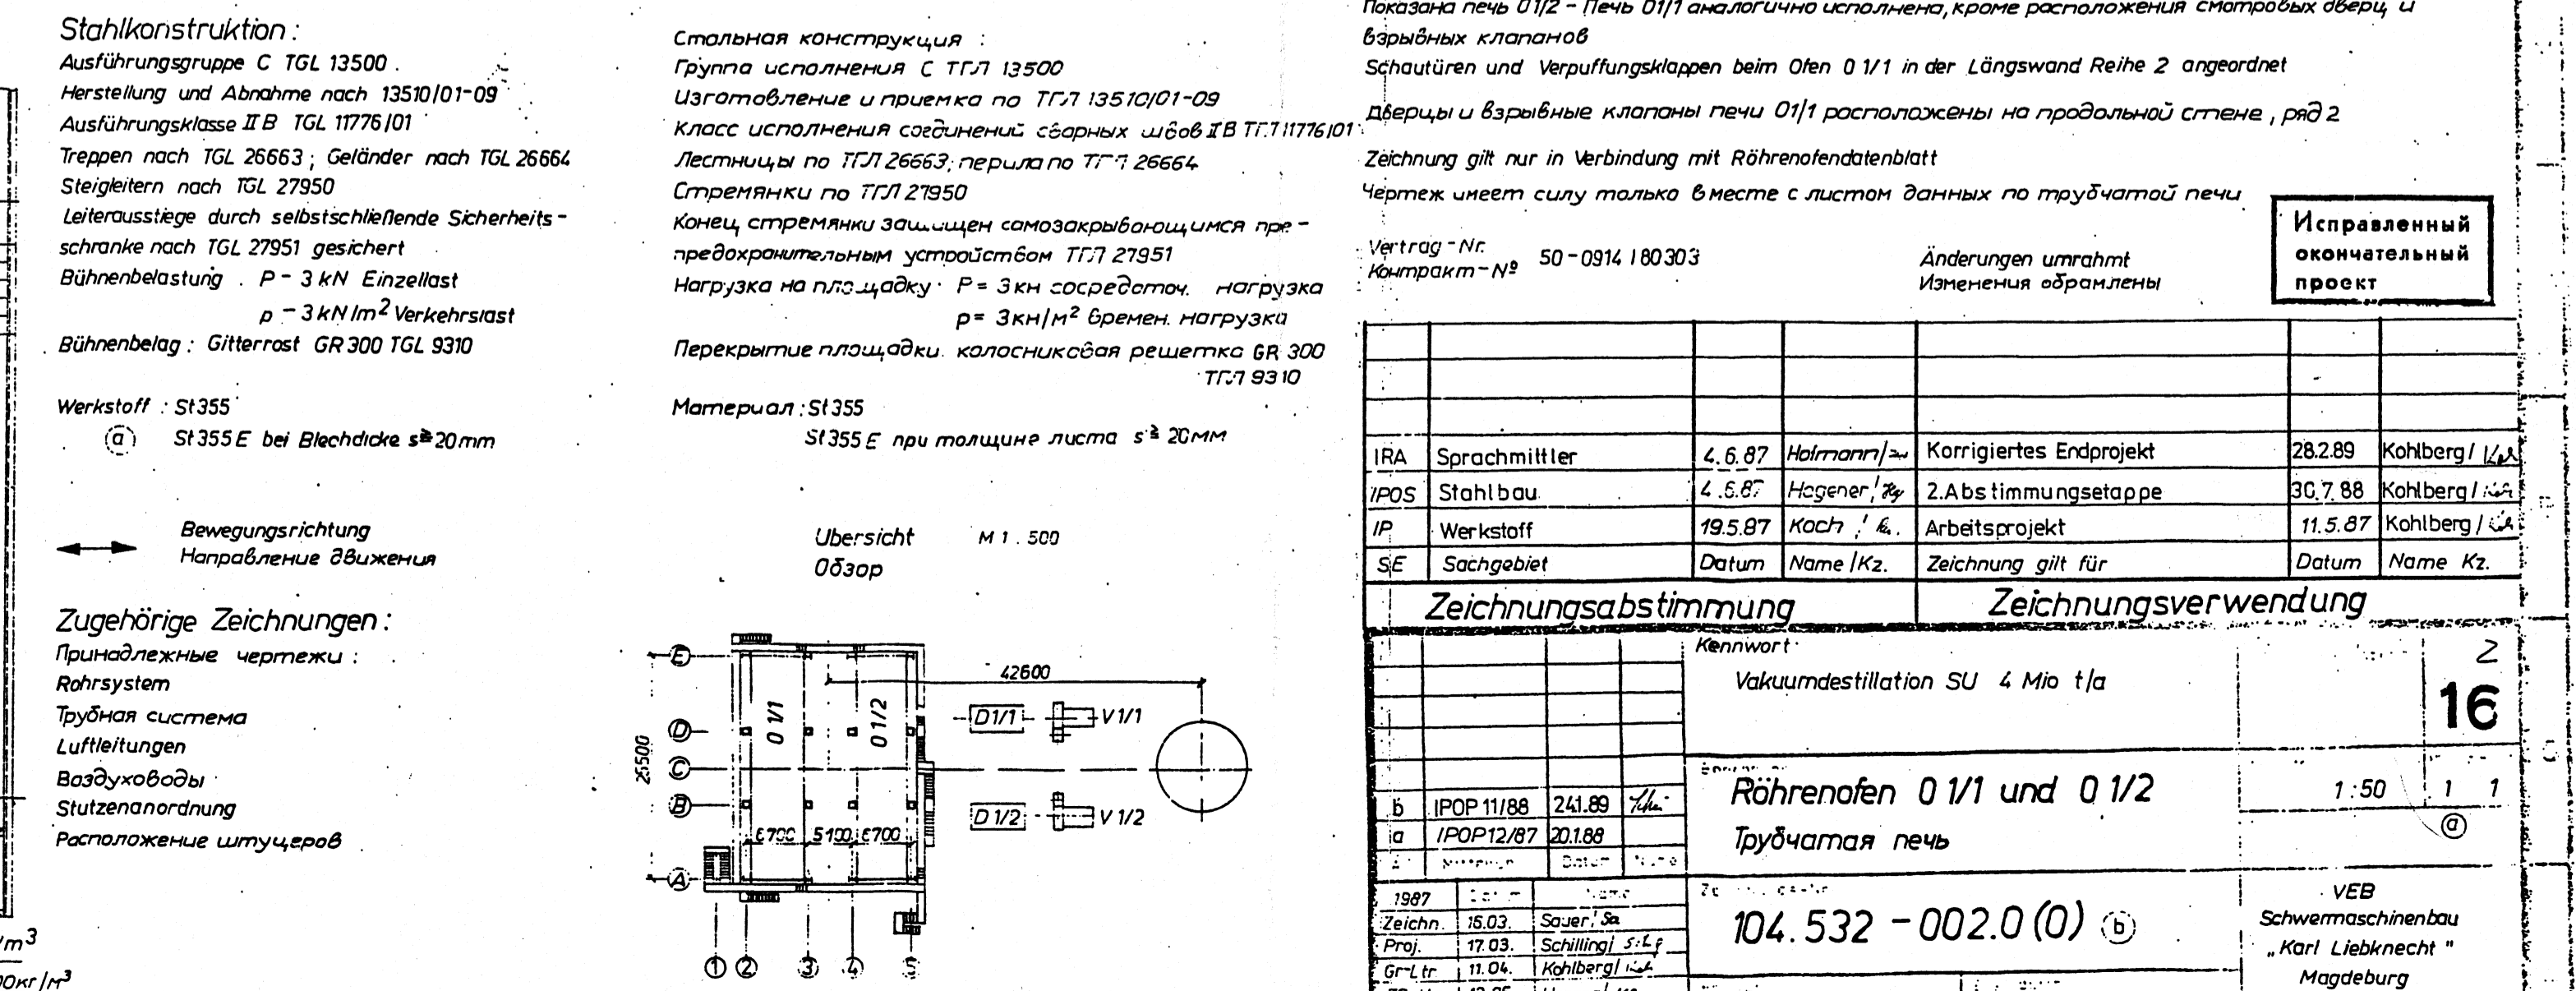 Stahlkonstruktion :
Ausführungsgruppe C TGL 13500 .
Herstellung und Abnahme nach 13510/01-09
Ausführungsklasse II B TGL 11776/01
Treppen nach TGL 26663 ; Geländer nach TGL 26664
Steigleitern nach TGL 27950
Leiterausstiege durch selbstschließende Sicherheits-
schranke nach TGL 27951 gesichert
Bühnenbelastung . P - 3 kN Einzellast
p - 3 kN/m² Verkehrslast
Bühnenbelag : Gitterrost GR 300 TGL 9310
Werkstoff : St 355
(a) St 355 E bei Blechdicke s ≧ 20 mm
Bewegungsrichtung
Направление движения
Zugehörige Zeichnungen :
Принадлежные чертежи :
Rohrsystem
Трубная система
Luftleitungen
Воздуховоды
Stutzenanordnung
Расположение штуцеров
/m³
кг/м³
Стальная конструкция :
Группа исполнения С ТГЛ 13500
Изготовление и приемка по ТГЛ 13510/01-09
Класс исполнения соединений сварных швов II В ТГЛ 11776/01
Лестницы по ТГЛ 26663; перила по ТГЛ 26664
Стремянки по ТГЛ 27950
Конец стремянки защищен самозакрывающимся пре-
предохранительным устройством ТГЛ 27951
Нагрузка на площадку P = 3 кн сосредоточ. нагрузка
p = 3 кн/м² времен. нагрузка
Перекрытие площадки. колосниковая решетка GR 300
ТГЛ 9310
Материал : St 355
St 355 E при толщине листа s ≧ 20 мм
Übersicht M 1 . 500
Обзор
E
D
C
B
A
25500
42600
0 1/1
0 1/2
D 1/1
V 1/1
D 1/2
V 1/2
6700 5100 6700
1 2 3 4 5
Показана печь 01/2 - Печь 01/1 аналогично исполнена, кроме расположения смотровых дверц и
взрывных клапанов
Schautüren und Verpuffungsklappen beim Ofen 0 1/1 in der Längswand Reihe 2 angeordnet
Дверцы и взрывные клапаны печи 01/1 расположены на продольной стене, ряд 2
Zeichnung gilt nur in Verbindung mit Röhrenofendatenblatt
Чертеж имеет силу только вместе с листом данных по трубчатой печи
Vertrag-Nr.
Контракт-№ 50-0914 / 80303
Änderungen umrahmt
Изменения обрамлены
Исправленный
окончательный
проект
IRA Sprachmittler 4.6.87 Hofmann/ Korrigiertes Endprojekt 28.2.89 Kohlberg/
IPOS Stahlbau 4.6.87 Hagener/ 2.Abstimmungsetappe 30.7.88 Kohlberg/
IP Werkstoff 19.5.87 Koch / Arbeitsprojekt 11.5.87 Kohlberg/
SE Sachgebiet Datum Name/Kz. Zeichnung gilt für Datum Name Kz.
Zeichnungsabstimmung Zeichnungsverwendung
Kennwort
Vakuumdestillation SU 4 Mio t/a
2
16
Röhrenofen 0 1/1 und 0 1/2
Трубчатая печь
1:50 1 1
(a)
b IPOP 11/88 24.1.89
a IPOP 12/87 20.1.88
Datum Name
1987
Zeichn. 16.03. Sauer/ Sa
Proj. 17.03. Schilling/
Gr-Ltr 11.04. Kohlberg/
104.532 - 002.0 (0) (b)
VEB
Schwermaschinenbau
„Karl Liebknecht"
Magdeburg